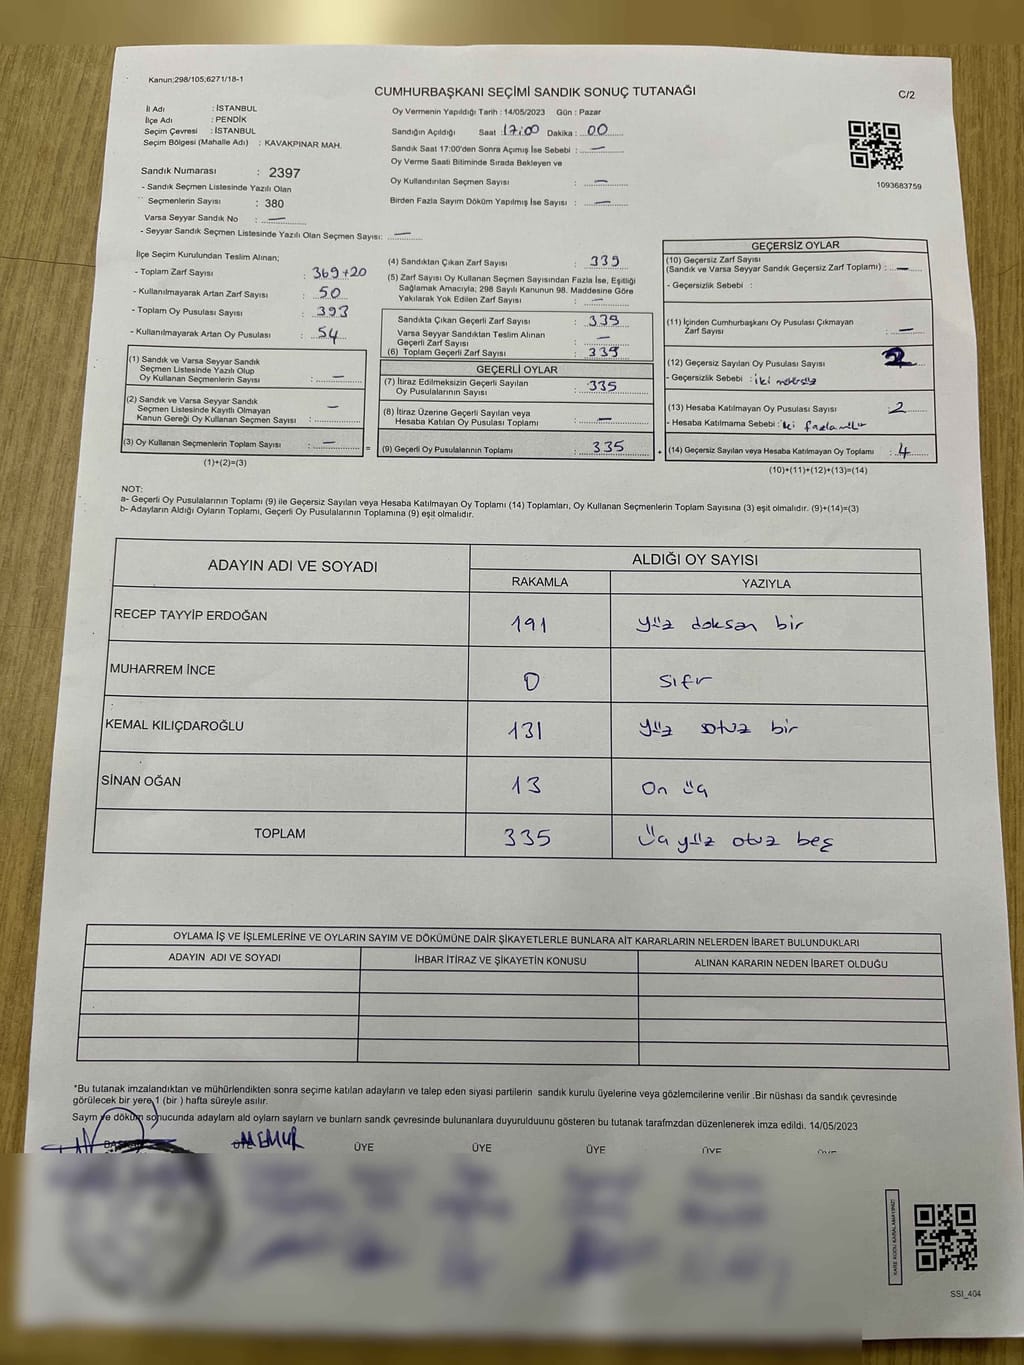 Kanun;298/105;6271/18-1
CUMHURBAŞKANI SEÇİMİ SANDIK SONUÇ TUTANAĞI
C/2
İl Adı : İSTANBUL
İlçe Adı : PENDİK
Seçim Çevresi : İSTANBUL
Seçim Bölgesi (Mahalle Adı) : KAVAKPINAR MAH.
Sandık Numarası : 2397
- Sandık Seçmen Listesinde Yazılı Olan
Seçmenlerin Sayısı : 380
Varsa Seyyar Sandık No : —
- Seyyar Sandık Seçmen Listesinde Yazılı Olan Seçmen Sayısı: —
Oy Vermenin Yapıldığı Tarih : 14/05/2023 Gün : Pazar
Sandığın Açıldığı Saat : 17:00 Dakika : 00
Sandık Saat 17:00'den Sonra Açımış İse Sebebi : —
Oy Verme Saati Bitiminde Sırada Bekleyen ve
Oy Kullandırılan Seçmen Sayısı : —
Birden Fazla Sayım Döküm Yapılmış İse Sayısı : —
1093683759
İlçe Seçim Kurulundan Teslim Alınan;
- Toplam Zarf Sayısı : 369+20
- Kullanılmayarak Artan Zarf Sayısı : 50
- Toplam Oy Pusulası Sayısı : 393
- Kullanılmayarak Artan Oy Pusulası : 54
(1) Sandık ve Varsa Seyyar Sandık
Seçmen Listesinde Yazılı Olup
Oy Kullanan Seçmenlerin Sayısı : —
(2) Sandık ve Varsa Seyyar Sandık
Seçmen Listesinde Kayıtlı Olmayan
Kanun Gereği Oy Kullanan Seçmen Sayısı : —
(3) Oy Kullanan Seçmenlerin Toplam Sayısı : —
(1)+(2)=(3)
(4) Sandıktan Çıkan Zarf Sayısı : 339
(5) Zarf Sayısı Oy Kullanan Seçmen Sayısından Fazla İse, Eşitliği
Sağlamak Amacıyla; 298 Sayılı Kanunun 98. Maddesine Göre
Yakılarak Yok Edilen Zarf Sayısı : —
Sandıkta Çıkan Geçerli Zarf Sayısı : 339
Varsa Seyyar Sandıktan Teslim Alınan
Geçerli Zarf Sayısı : —
(6) Toplam Geçerli Zarf Sayısı : 339
GEÇERLİ OYLAR
(7) İtiraz Edilmeksizin Geçerli Sayılan
Oy Pusulalarının Sayısı : 335
(8) İtiraz Üzerine Geçerli Sayılan veya
Hesaba Katılan Oy Pusulası Toplamı : —
= (9) Geçerli Oy Pusulalarının Toplamı : 335 +
GEÇERSİZ OYLAR
(10) Geçersiz Zarf Sayısı
(Sandık ve Varsa Seyyar Sandık Geçersiz Zarf Toplamı) : —
- Geçersizlik Sebebi :
(11) İçinden Cumhurbaşkanı Oy Pusulası Çıkmayan
Zarf Sayısı : —
(12) Geçersiz Sayılan Oy Pusulası Sayısı : 2
- Geçersizlik Sebebi : iki
(13) Hesaba Katılmayan Oy Pusulası Sayısı : 2
- Hesaba Katılmama Sebebi : iki
(14) Geçersiz Sayılan veya Hesaba Katılmayan Oy Toplamı : 4
(10)+(11)+(12)+(13)=(14)
NOT:
a- Geçerli Oy Pusulalarının Toplamı (9) ile Geçersiz Sayılan veya Hesaba Katılmayan Oy Toplamı (14) Toplamları, Oy Kullanan Seçmenlerin Toplam Sayısına (3) eşit olmalıdır. (9)+(14)=(3)
b- Adayların Aldığı Oyların Toplamı, Geçerli Oy Pusulalarının Toplamına (9) eşit olmalıdır.
ADAYIN ADI VE SOYADI ALDIĞI OY SAYISI
RAKAMLA YAZIYLA
RECEP TAYYİP ERDOĞAN 191 yüz doksan bir
MUHARREM İNCE 0 sıfır
KEMAL KILIÇDAROĞLU 131 yüz otuz bir
SİNAN OĞAN 13 On üç
TOPLAM 335 üç yüz otuz beş
OYLAMA İŞ VE İŞLEMLERİNE VE OYLARIN SAYIM VE DÖKÜMÜNE DAİR ŞİKAYETLERLE BUNLARA AİT KARARLARIN NELERDEN İBARET BULUNDUKLARI
ADAYIN ADI VE SOYADI İHBAR İTİRAZ VE ŞİKAYETİN KONUSU ALINAN KARARIN NEDEN İBARET OLDUĞU
*Bu tutanak imzalandıktan ve mühürlendikten sonra seçime katılan adayların ve talep eden siyasi partilerin sandık kurulu üyelerine veya gözlemcilerine verilir .Bir nüshası da sandık çevresinde
görülecek bir yere 1 (bir ) hafta süreyle asılır.
Sayım ve döküm sonucunda adaylarn ald oylarn saylarn ve bunlarn sandk çevresinde bulunanlara duyurulduunu gösteren bu tutanak tarafmzdan düzenlenerek imza edildi. 14/05/2023
MEMUR ÜYE ÜYE ÜYE ÜYE ÜYE
KARE KODU KARALAMAYINIZ!
SSI_404